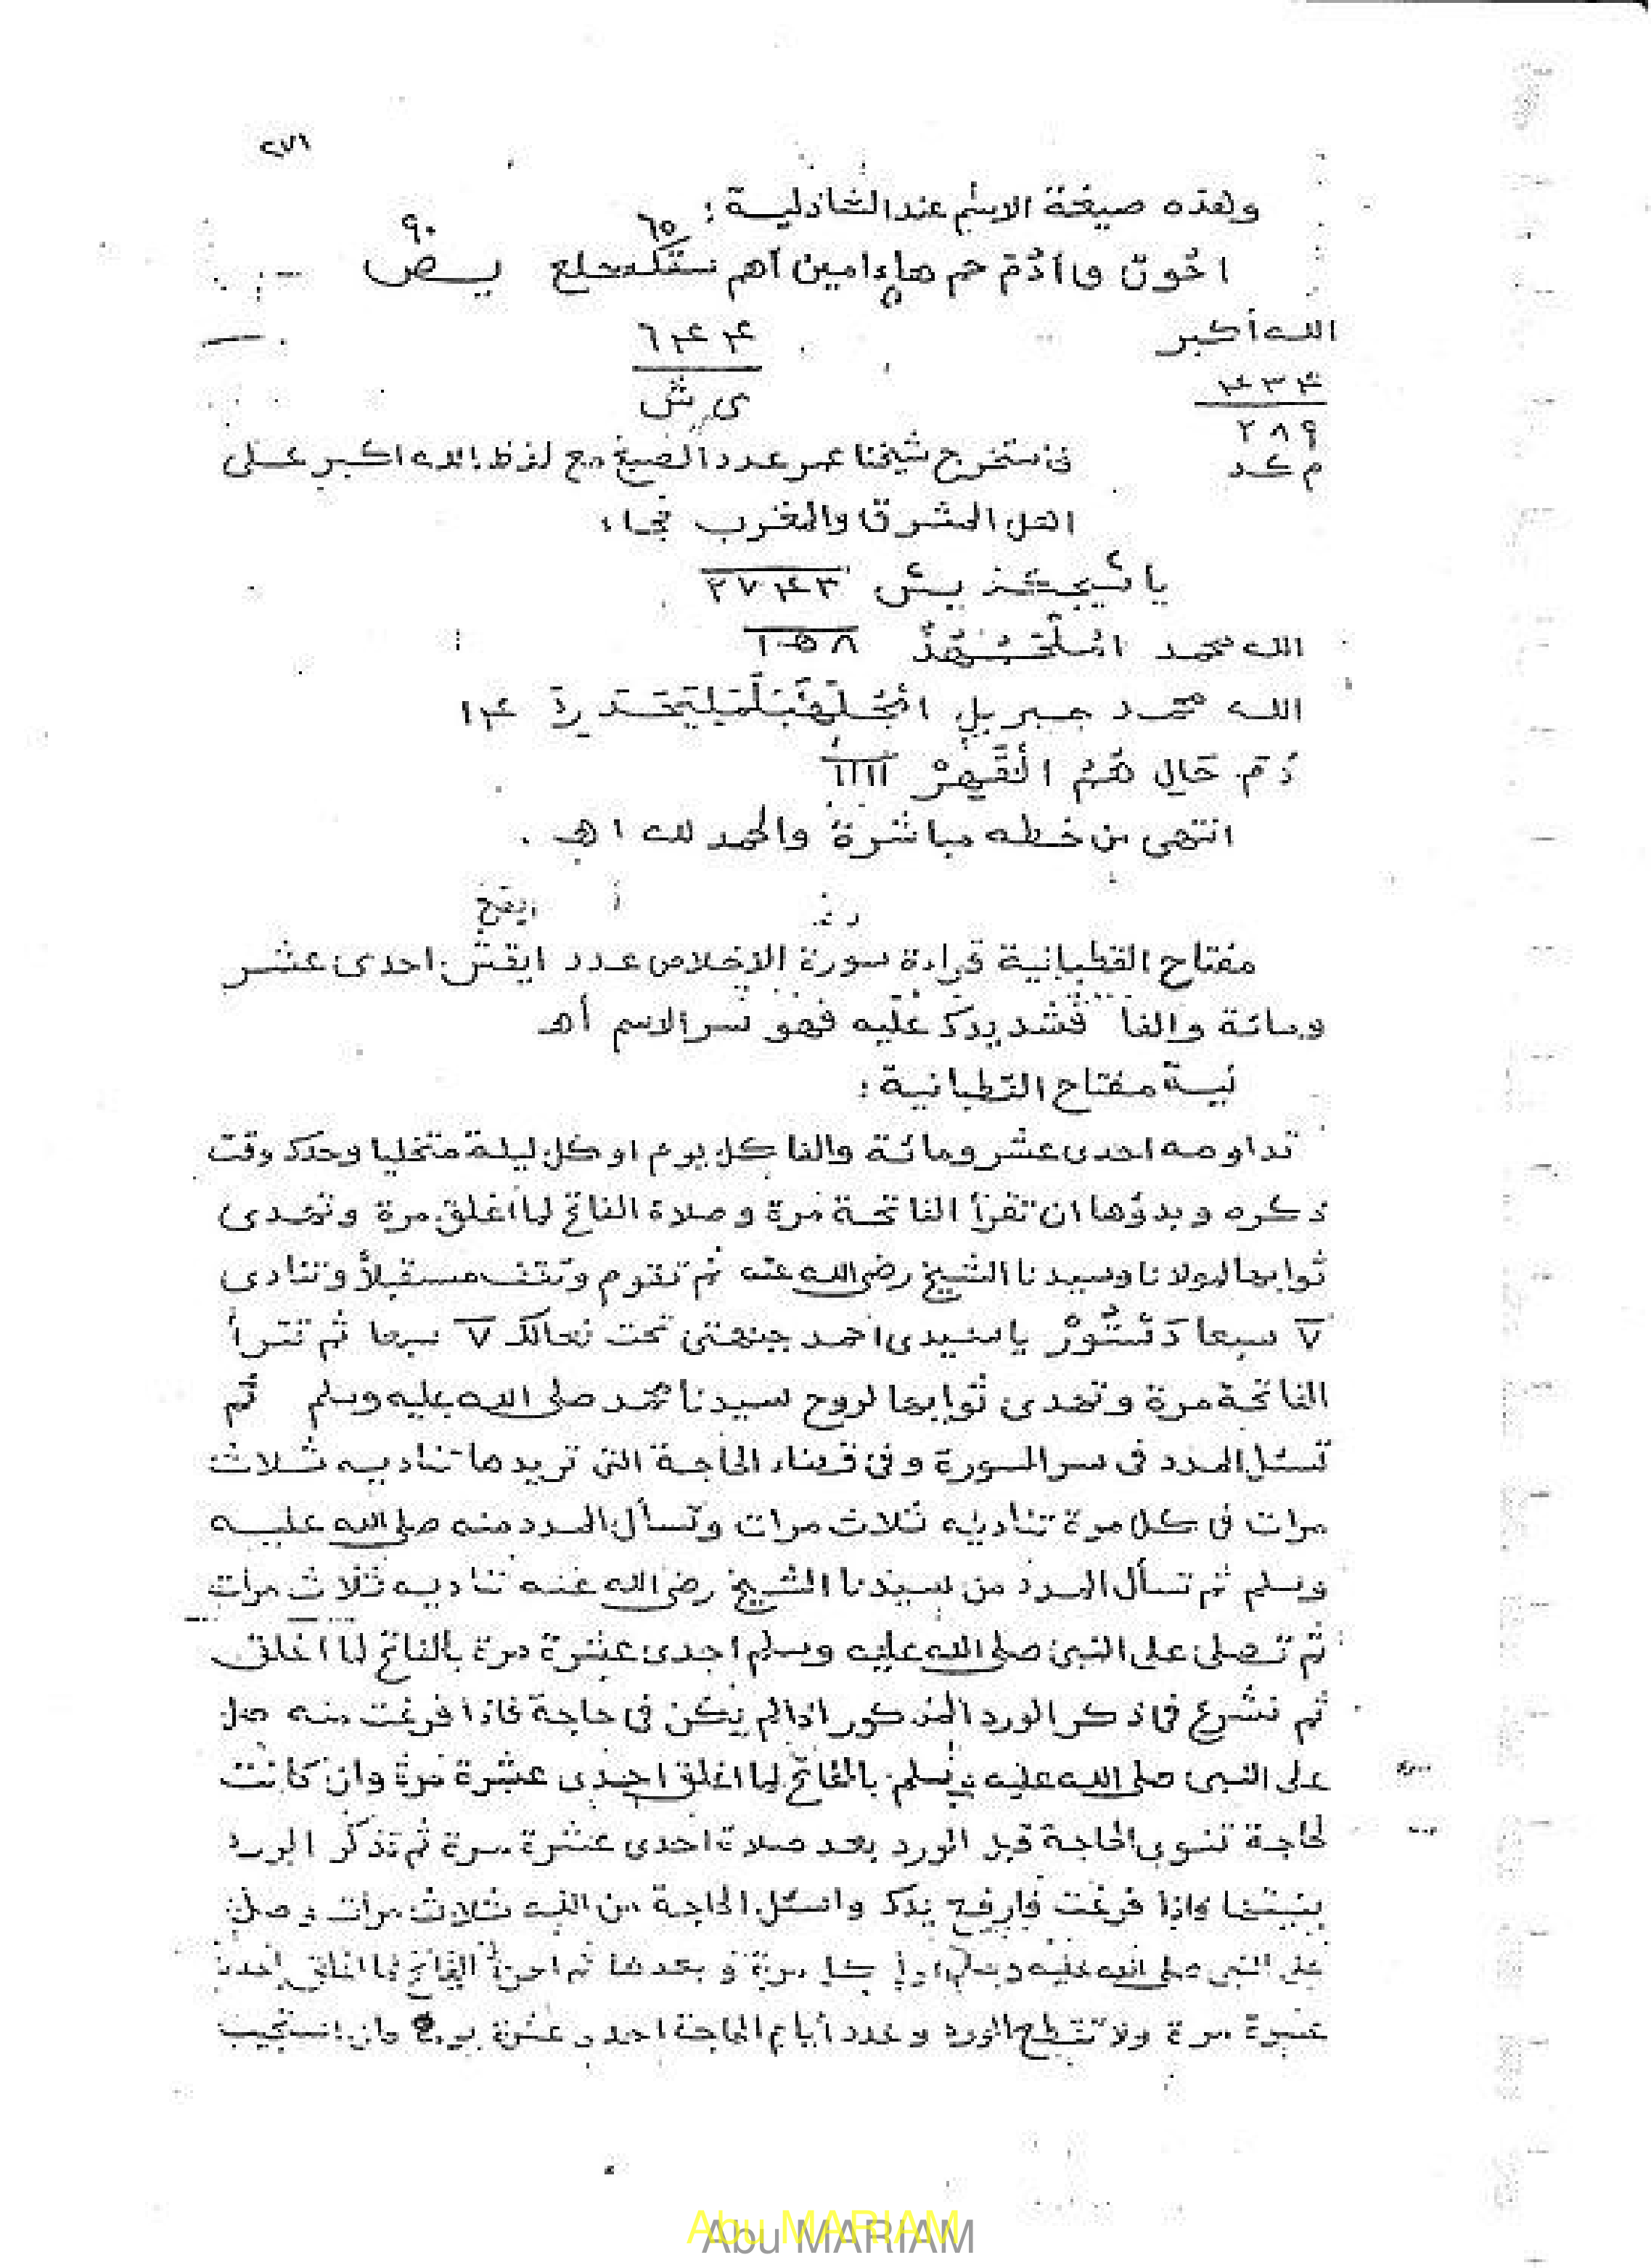 ٢٧١
وهذه صيغة الاسم عند الشاذلية :
٦٥ ٩٠
احون ق ادم حم هاء امين اهم سقك حلع يص
الله أكبر ٦٤٤
٤٣٤
ى ش
٢٨٩
م كد
فاستخرج شيخنا عمر عدد الصيغ مع لفظ الله اكبر على
اهل المشرق والمغرب فجاء
يا
٢٧٤٣
الله محمد
١٠٥٨
الله محمد جبريل ١٤
انتهى من خطه مباشرة والحمد لله اهـ .
ايقغ
مفتاح القطبانية قراءة سورة الاخلاص عدد ايقش احدى عشر
ومائة والفا فشد يدك عليه فهو سر الاسم أهـ
نية مفتاح القطبانية :
تداومه احدى عشر ومائة والفا كل يوم او كل ليلة متخليا وحدك وقت
ذكره وبدؤها ان تقرأ الفاتحة مرة وصلاة الفاتح لما اغلق مرة وتهدى
ثوابها لمولانا وسيدنا الشيخ رضى الله عنه ثم تقوم وتقف مستقبلا وتنادى
٧ سبعا دستور يا سيدى احمد جئتنى تحت نعالك ٧ سبعا ثم تقرأ
الفاتحة مرة وتهدى ثوابها لروح سيدنا محمد صلى الله عليه وسلم ثم
تسئل المدد فى سر السورة وفى قضاء الحاجة التى تريدها تناديه ثلاث
مرات فى كل مرة تناديه ثلاث مرات وتسأل المدد منه صلى الله عليه
وسلم ثم تسأل المدد من سيدنا الشيخ رضى الله عنه تناديه ثلاث مرات
ثم تصلى على النبى صلى الله عليه وسلم احدى عشرة مرة بالفاتح لما اغلق
ثم تشرع فى ذكر الورد المذكور اذا لم يكن فى حاجة فاذا فرغت منه صل
على النبى صلى الله عليه وسلم بالفاتح لما اغلق احدى عشرة مرة وان كانت
لحاجة تنوى الحاجة قبل الورد بعد صلاة احدى عشرة مرة ثم تذكر الورد
بنيتها واذا فرغت فارفع يدك واسئل الحاجة من الله ثلاث مرات وصل
على النبى صلى الله عليه وسلم اول كل مرة و بعدها ثم الفاتح لما اغلق احدى
عشرة مرة ولا تقطع الورد وعدد أيام الحاجة احدى عشرة يوما وان استجيب
Abu MARIAM
Abu MARIAM